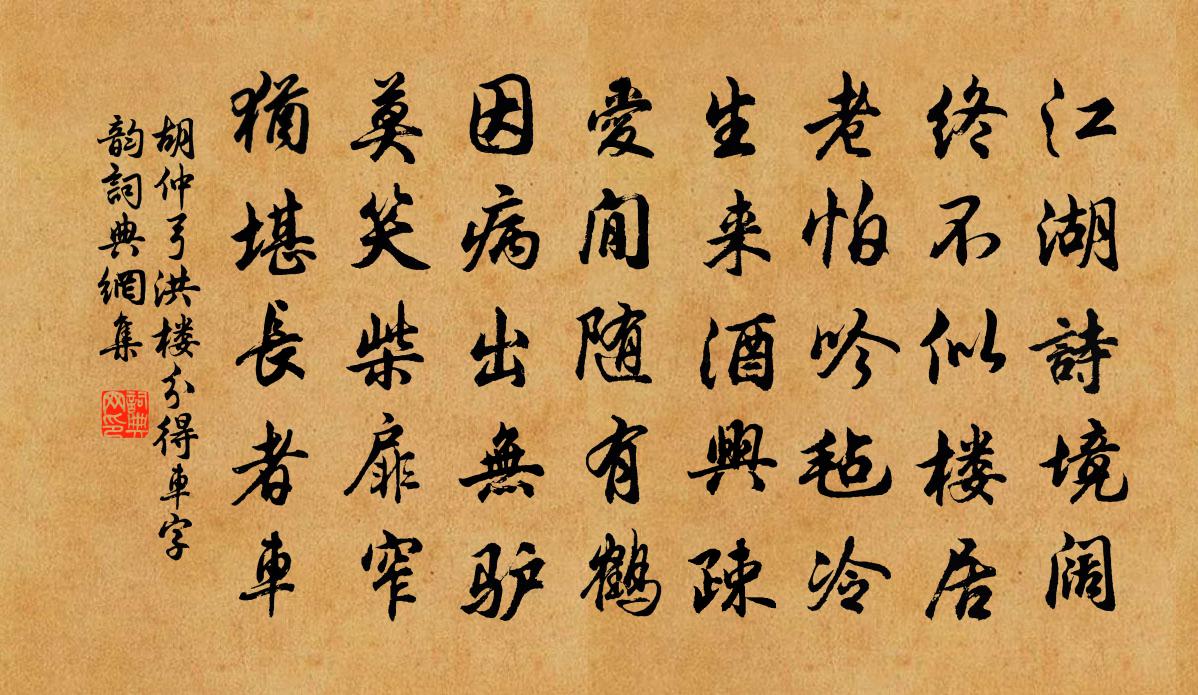 江湖詩境阔
终不似楼居
老怕吟毡冷
生来酒興疎
愛閒随有鹤
因病出無驴
莫笑柴扉窄
猶堪長者車
胡仲弓洪楼分得車字
韵詞典網集
詞典
网印